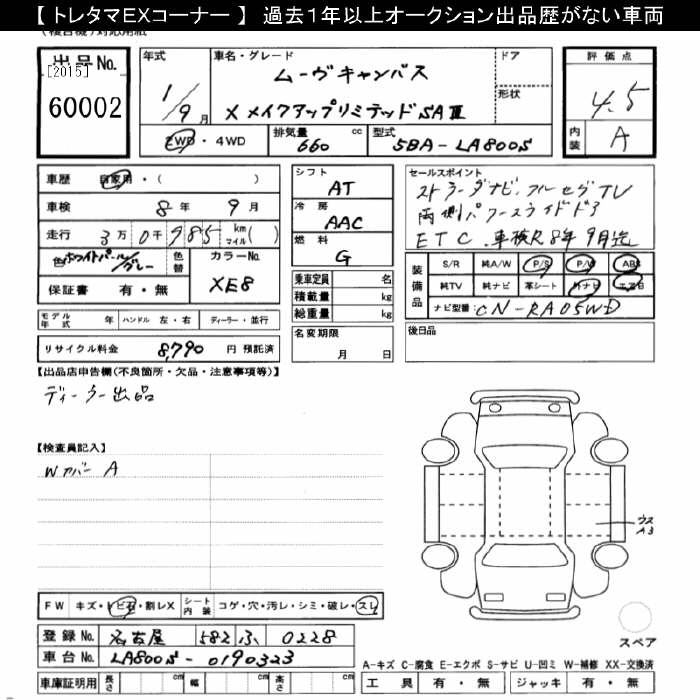 【 トレタマEXコーナー 】 過去1年以上オークション出品歴がない車両
出品No.
[2015]
60002
年式
1/9月
車名・グレード
ムーヴキャンバス
X メイクアップリミテッド SAⅢ
ドア
形状
2WD・4WD
排気量
660 cc
型式
5BA-LA800S
評価点
4.5
内装
A
車歴 自家用・( )
車検 8年 9月
走行 3万0千985 km マイル( )
色 ホワイトパール/グレー
色替
カラーNo.
XE8
保証書 有・無
モデル年式 年 ハンドル 左・右 ディーラー・並行
リサイクル料金 8,790 円 預託済
シフト
AT
冷房
AAC
燃料
G
乗車定員 名
積載量 kg
総重量 kg
名変期限
月 日
セールスポイント
ストラーダナビ.フルセグTV
両側パワースライドドア
ETC.車検R8年9月迄
装備品
S/R 純A/W P/S P/W ABS
純TV 純ナビ 革シート 社外ナビ エアB
ナビ型番 CN-RA05WD
後日品
【出品店申告欄(不良箇所・欠品・注意事項等)】
ディーラー出品
【検査員記入】
Wカバー A
ウス
A3
FW キズ・トビ石・割レX
シート内装 コゲ・穴・汚レ・シミ・破レ・スレ
登録No. 名古屋 582 ふ 0228
車台No. LA800S-0190323
車庫証明用 長さ cm 幅 cm 高さ cm
スペア
A-キズ C-腐食 E-エクボ S-サビ U-凹ミ W-補修 XX-交換済
工具 有・無 ジャッキ 有・無